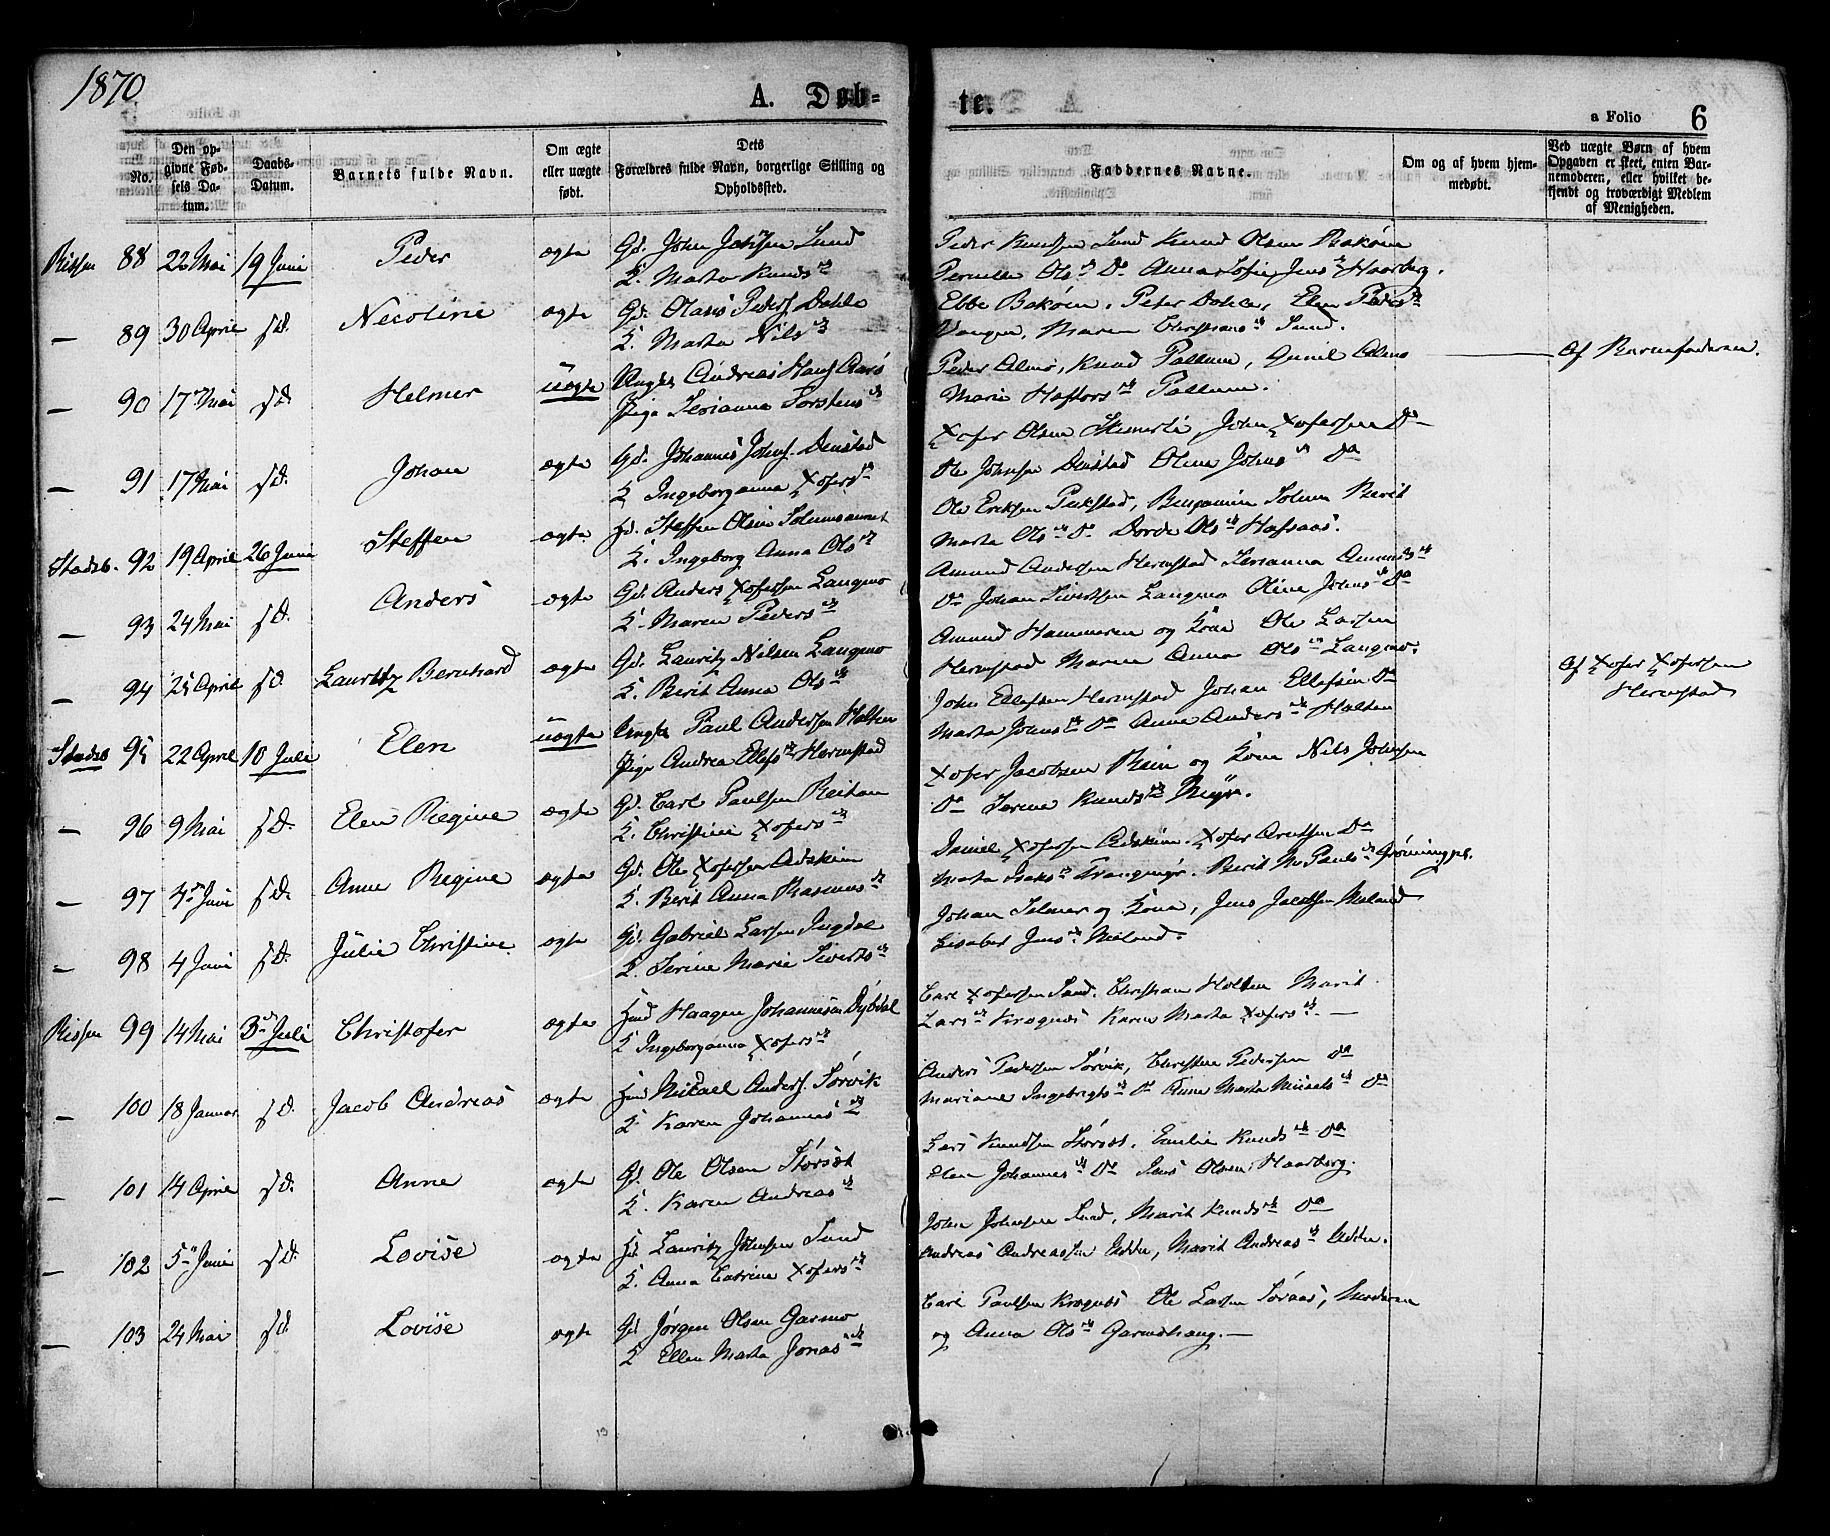 1870.
A. Døb-
te.
a Folio 6
No.
Den op-
givne Fød-
sels Da-
tum.
Daabs-
Datum.
Barnets fulde Navn.
Om ægte
eller uægte
født.
Dets
Forældres fulde Navn, borgerlige Stilling og
Opholdssted.
Faddernes Navne.
Om og af hvem hjem-
medøbt.
Ved uægte Børn af hvem
Opgaven er skeet, enten Bar-
nemoderen, eller hvilket be-
kjendt og troværdigt Medlem
af Menigheden.
Rissen 88 22 Mai 19 Juni Peder ægte Gd. John Johnsen Sund
K. Marta Knudsdt
Peder Knudsen Sund Knud Olsen Bakøen
Pernille Olsdt Do Anna Sofie Jensdt Haarberg.
— 89 30 April s.d. Nicoline ægte Gd. Olaus Peders. Dahle
K. Marta Nilsdt
Ebbe Bakøen, Peter Dahle, Elen Pedersdt
Vangen, Maren Christiansdt Sund.
— 90 17de Mai s.d. Helmer uægte Ungk. Andreas Hans. Aars
Pige Serianna Torstensdt
Peder Alens, Knud Pallum, Gunil
Marie Haftorsdt Pallum.
Af Barnefaderen.
— 91 17 Mai s.d. Johan ægte Gd. Johannes Johns. Denstad
K Ingeborganna Xofersdt
Xofer Olsen Skimerli, John Xofersen Do
Ole Johnsen Denstad Oline Johnsdt Do
Stadsb. 92 19 April 26 Juni Steffen ægte Hd. Steffen Olsen Solemsaunet
K. Ingeborg Anna Olsdt
Ole Eriksen Pukstad, Benjamin Solem Berit
Marta Olsdt Do Dorde Olsdt Hafsaas.
— 93 24 Mai s.d. Anders ægte Gd. Anders Xofersen Langmo
K. Maren Pedersdt
Amund Andersen Hermstad Serianna Amundsdt
Do Johan Sivertsen Langmo Oline Johnsdt Do
— 94 25 April s.d. Lauritz Bernhard ægte Gd. Lauritz Nilsen Langmo
K. Berit Anna Olsdt
Amund Hammeren og Kone Ole Larsen
Hermstad Maren Anna Olsdt Langmo.
Stadsb 95 22 April 10 Juli Elen uægte Ungk. Paul Andersen Holten
Pige Andrea Ellefsdt Hermstad
John Ellefsen Hermstad Johan Ellefsen Do
Marta Johnsdt Do Anne Andersdt Holten
Af Xofer Xofersen
Hermstad
— 96 9 Mai s.d. Elen Regine ægte Gd. Carl Paulsen Reitan
K. Christine Xofersdt
Xofer Jacobsen Rein og Kone Nils Johnsen
Do Serine Knudsdt Myr.
— 97 4de Juni s.d. Anne Regine ægte Gd. Ole Xofersen Askim
K. Berit Anna Rasmusdt
Daniel Xofersen Askim. Xofer Arntsen Do
Marta Isaksdt Trangmyr. Berit M. Paulsdt Grønningpl.
— 98 4 Juni s.d. Julie Christine ægte Gd. Gabriel Larsen Ingdal
K. Serine Marie Sivertsdt
Johan Selmer og Kone, Jens Jacobsen Meland
Lisabet Jensdt Meland.
Rissen 99 14 Mai 3de Juli Christofer ægte Hmd Haagen Johannesen Dybdal
K Ingeborganna Xofersdt
Carl Xofersen Sund. Christian Holten Marit
Larsdt Kragnæs Karen Marta Xofersdt. —
— 100 18 Januar s.d. Jacob Andreas ægte Hmd Mikael Anders. Sørvik
K Karen Johannesdt
Anders Pedersen Sørvik, Christen Pedersen Do
Mariane Ingebrigtsdt Do Anne Marta Mikaelsdt Do
— 101 14 April s.d. Anne ægte Gd. Ole Olsen Størsæt
K. Karen Andreasdt
Lars Knudsen Størsæt. Emilie Knudsdt Do
Elen Johannesdt Do Jens Olsen Haarberg.
— 102 5te Juni s.d. Lovise ægte Hd. Lauritz Johnsen Sund
K. Anna Catrine Xofersdt
John Johnsen Sund, Marit Knudsdt Do
Andreas Andreassen Udden, Marit Andreasdt Udden.
— 103 24 Mai s.d. Lovise ægte Gd Jørgen Olsen Garmo
K Ellen Marta Jonasdt
Carl Paulsen Kragnæs Ole Larsen Søraas, Moderen
og Anna Olsdt Garmohaug. —